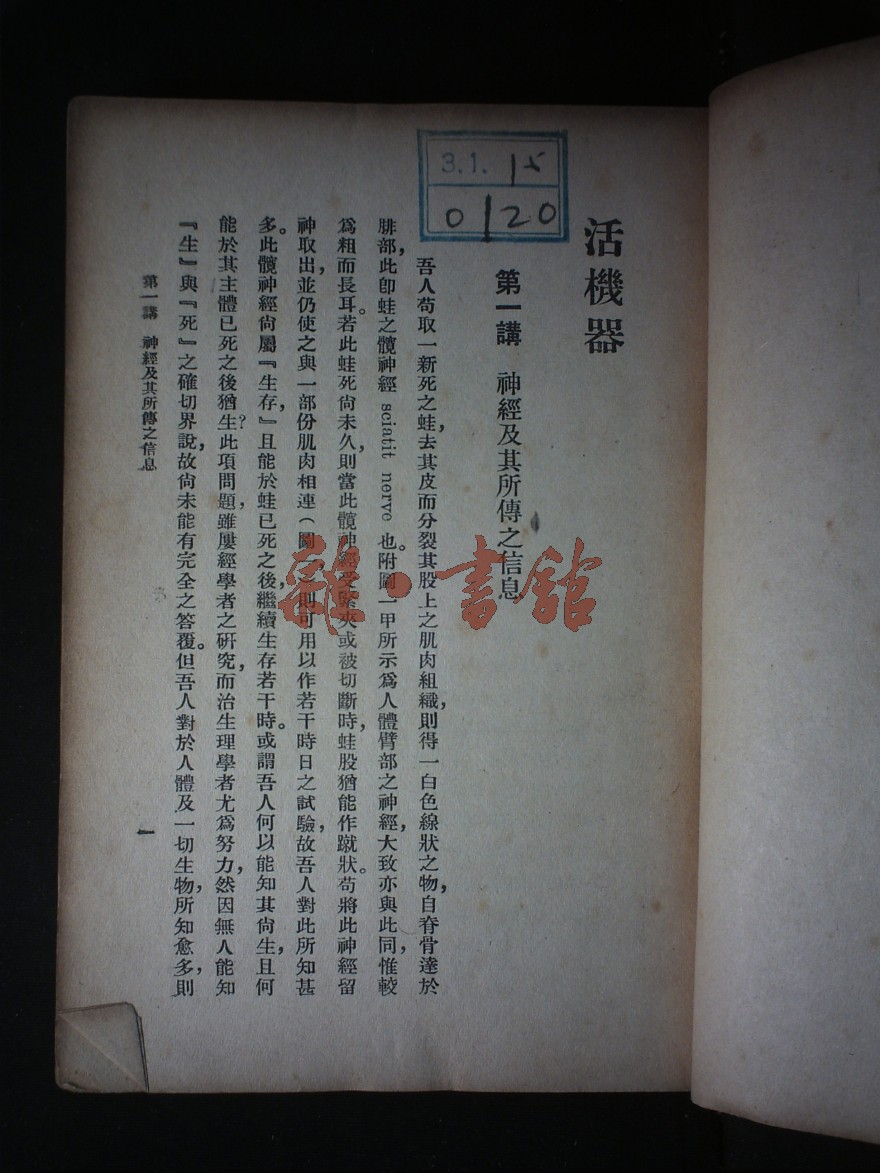 3.1.15
0120
活機器
第一講　神經及其所傳之信息
吾人苟取一新死之蛙去其皮而分裂其股上之肌肉組織，則得一白色線狀之物，自脊骨達於
腓部，此卽蛙之髖神經 sciatit nerve 也。附圖一甲所示爲人體臂部之神經，大致亦與此同，惟較
爲粗而長耳。若此蛙死尙未久，則當此髖神經受緊夾或被切斷時，蛙股猶能作蹴狀。苟將此神經留
神取出，並仍使之與一部份肌肉相連（圖則可用以作若干時日之試驗，故吾人對此所知甚
多。此髖神經尙屬『生存，』且能於蛙已死之後，繼續生存若干時。或謂吾人何以能知其尙生，且何
能於其主體已死之後猶生？此項問題，雖屢經學者之硏究，而治生理學者尤爲努力，然因無人能知
『生』與『死』之確切界說，故尙未能有完全之答覆。但吾人對於人體及一切生物，所知愈多，則
第一講　神經及其所傳之信息
一
龍·書館